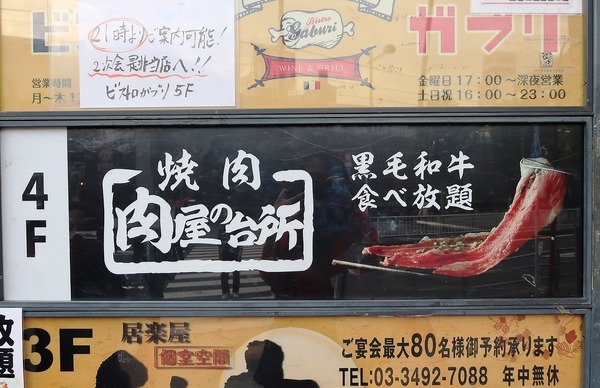 21時よりご案内可能!
2次会是非当店へ!!
ビストロガブリ 5F
ビ
Bistro
Gaburi
WINE & GRILL
ガブリ
営業時間
月～木
金曜日 17:00～深夜営業
土日祝 16:00～23:00
4F
焼肉
肉屋の台所
黒毛和牛
食べ放題
放題
3F
居楽屋
個室空間
ご宴会最大80名様御予約承ります
TEL:03-3492-7088 年中無休